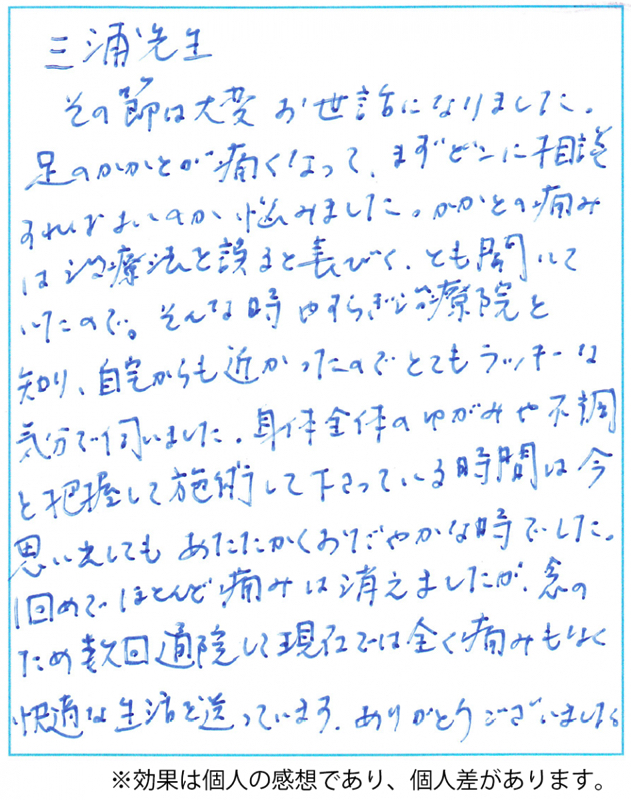 三浦先生
その節は大変お世話になりました。
足のかかとが痛くなって、まずどこに相談
すればよいのか悩みました。かかとの痛み
は治療法を誤ると長びく、とも聞いて
いたので。そんな時やすらぎ治療院を
知り、自宅からも近かったのでとてもラッキーな
気分で伺いました。身体全体のゆがみや不調
を把握して施術して下さっている時間は今
思い出してもあたたかくおだやかな時でした。
1回めでほとんど痛みは消えましたが、念の
ため数回通院して現在では全く痛みもなく
快適な生活を送っています。ありがとうございました
※効果は個人の感想であり、個人差があります。